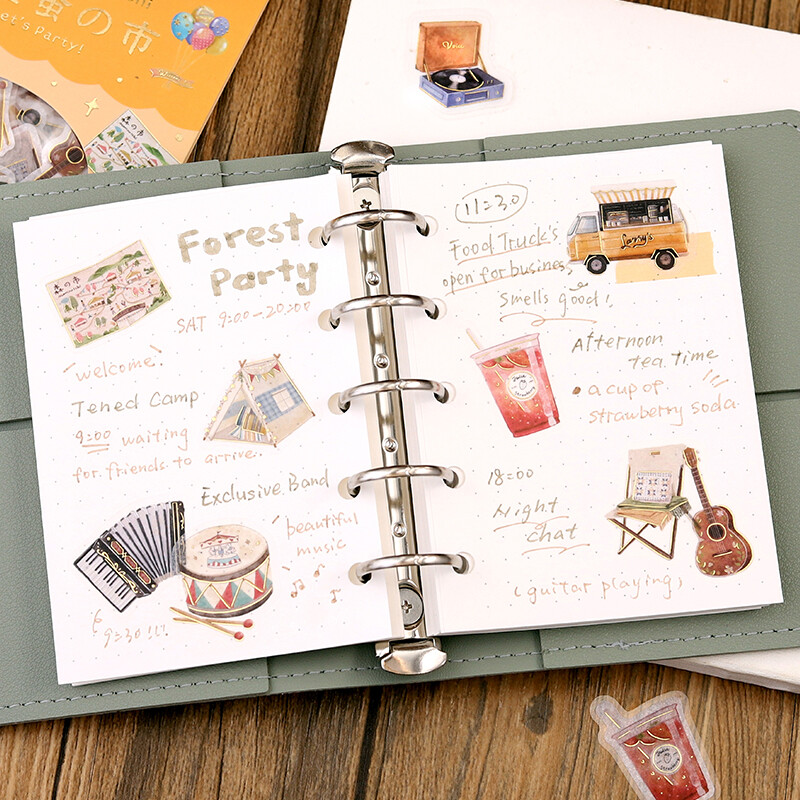 蚤の市
Let's Party!
森の市
Forest
Party
SAT 9:00-20:00
welcome
Tened Camp
9:00 waiting
for friends to arrive.
Exclusive Band
beautiful
music
9:30 !!!
11:30
Food Truck's
open for busines,
Smells good!
Afternoon
tea time
a cup of
strawberry soda
18:00
Night
chat
(guitar playing)